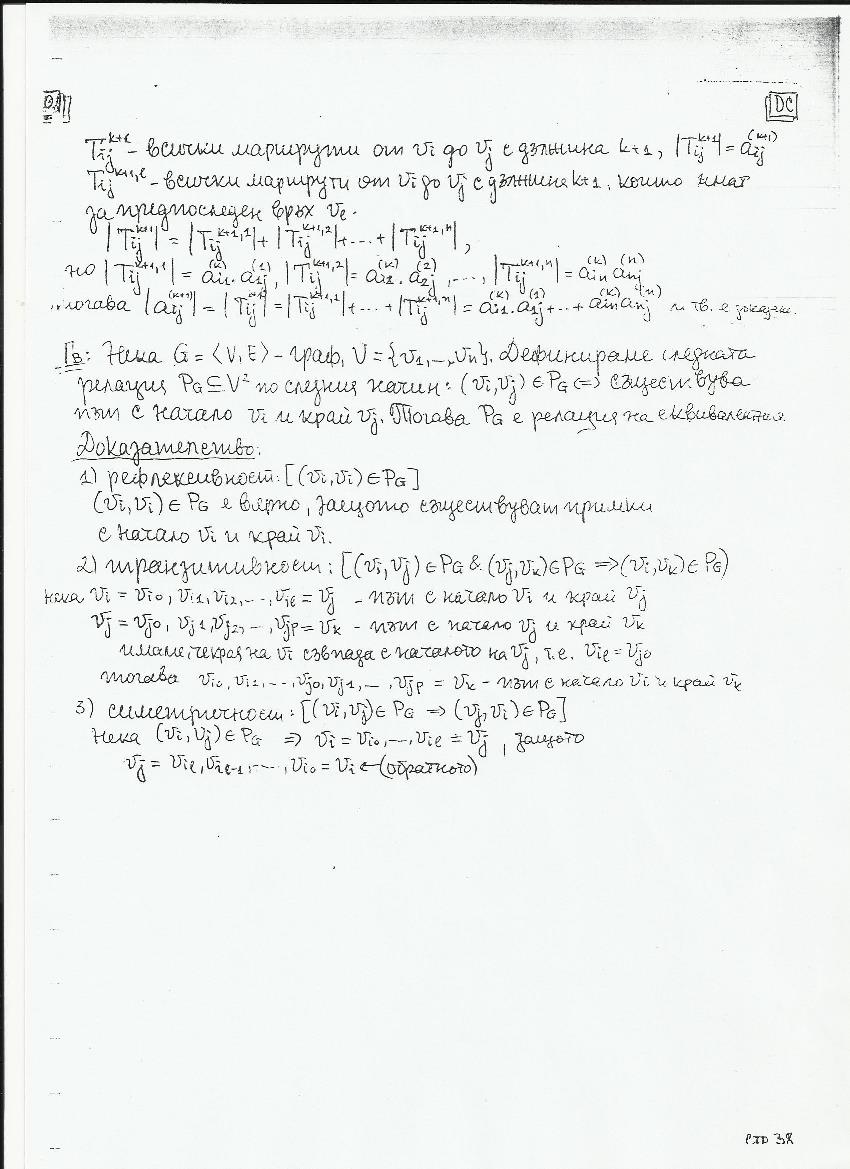 DC
T_ij^{k+1} - всички маршрути от v_i до v_j с дължина k+1, |T_ij^{k+1}| = a_ij^{(k+1)}
T_ij^{k+1,l} - всички маршрути от v_i до v_j с дължина k+1, които имат
за предпоследен връх v_l.
|T_ij^{k+1}| = |T_ij^{k+1,1}| + |T_ij^{k+1,2}| + ... + |T_ij^{k+1,n}|,
но |T_ij^{k+1,1}| = a_i1^{(k)}.a_1j^{(1)}, |T_ij^{k+1,2}| = a_i2^{(k)}.a_2j^{(2)}, ..., |T_ij^{k+1,n}| = a_in^{(k)} a_nj^{(n)}
тогава |a_ij^{(k+1)}| = |T_ij^{k+1}| = |T_ij^{k+1,1}| + ... + |T_ij^{k+1,n}| = a_i1^{(k)}.a_1j^{(1)} + ... + a_in^{(k)} a_nj^{(n)} и тв. е доказ.
Тв: Нека G = ⟨V, E⟩ - граф, V = {v_1, ..., v_n}. Дефинираме следната
релация P_G ⊆ V² по следния начин: (v_i, v_j) ∈ P_G ⟺ съществува
път с начало v_i и край v_j. Тогава P_G е релация на еквивалентност.
Доказателство:
1) рефлексивност: [(v_i, v_i) ∈ P_G]
(v_i, v_i) ∈ P_G е вярно, защото съществуват примки
с начало v_i и край v_i.
2) транзитивност: [(v_i, v_j) ∈ P_G & (v_j, v_k) ∈ P_G ⟹ (v_i, v_k) ∈ P_G)
нека v_i = v_i0, v_i1, v_i2, ..., v_il = v_j - път с начало v_i и край v_j
v_j = v_j0, v_j1, v_j2, ..., v_jp = v_k - път с начало v_j и край v_k
имаме, че края на v_i съвпада с началото на v_j, т.е. v_il = v_j0
тогава v_i0, v_i1, ..., v_j0, v_j1, ..., v_jp = v_k - път с начало v_i и край v_k
3) симетричност: [(v_i, v_j) ∈ P_G ⟹ (v_j, v_i) ∈ P_G]
Нека (v_i, v_j) ∈ P_G ⟹ v_i = v_i0, ..., v_il = v_j, защото
v_j = v_il, v_il-1, ..., v_i0 = v_i ← (обратното)
38